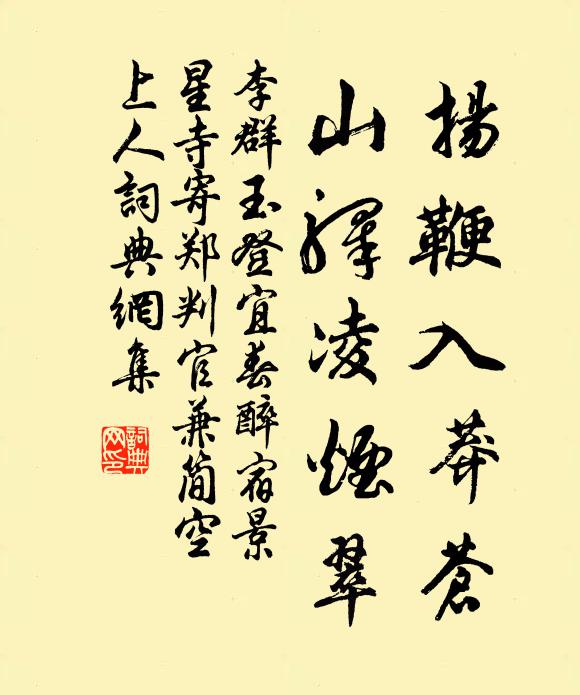 揚鞭入莽蒼
山驛凌煙翠
李群玉登宜春醉宿景
星寺寄郑判官兼簡空
上人詞典網集
詞典
网印